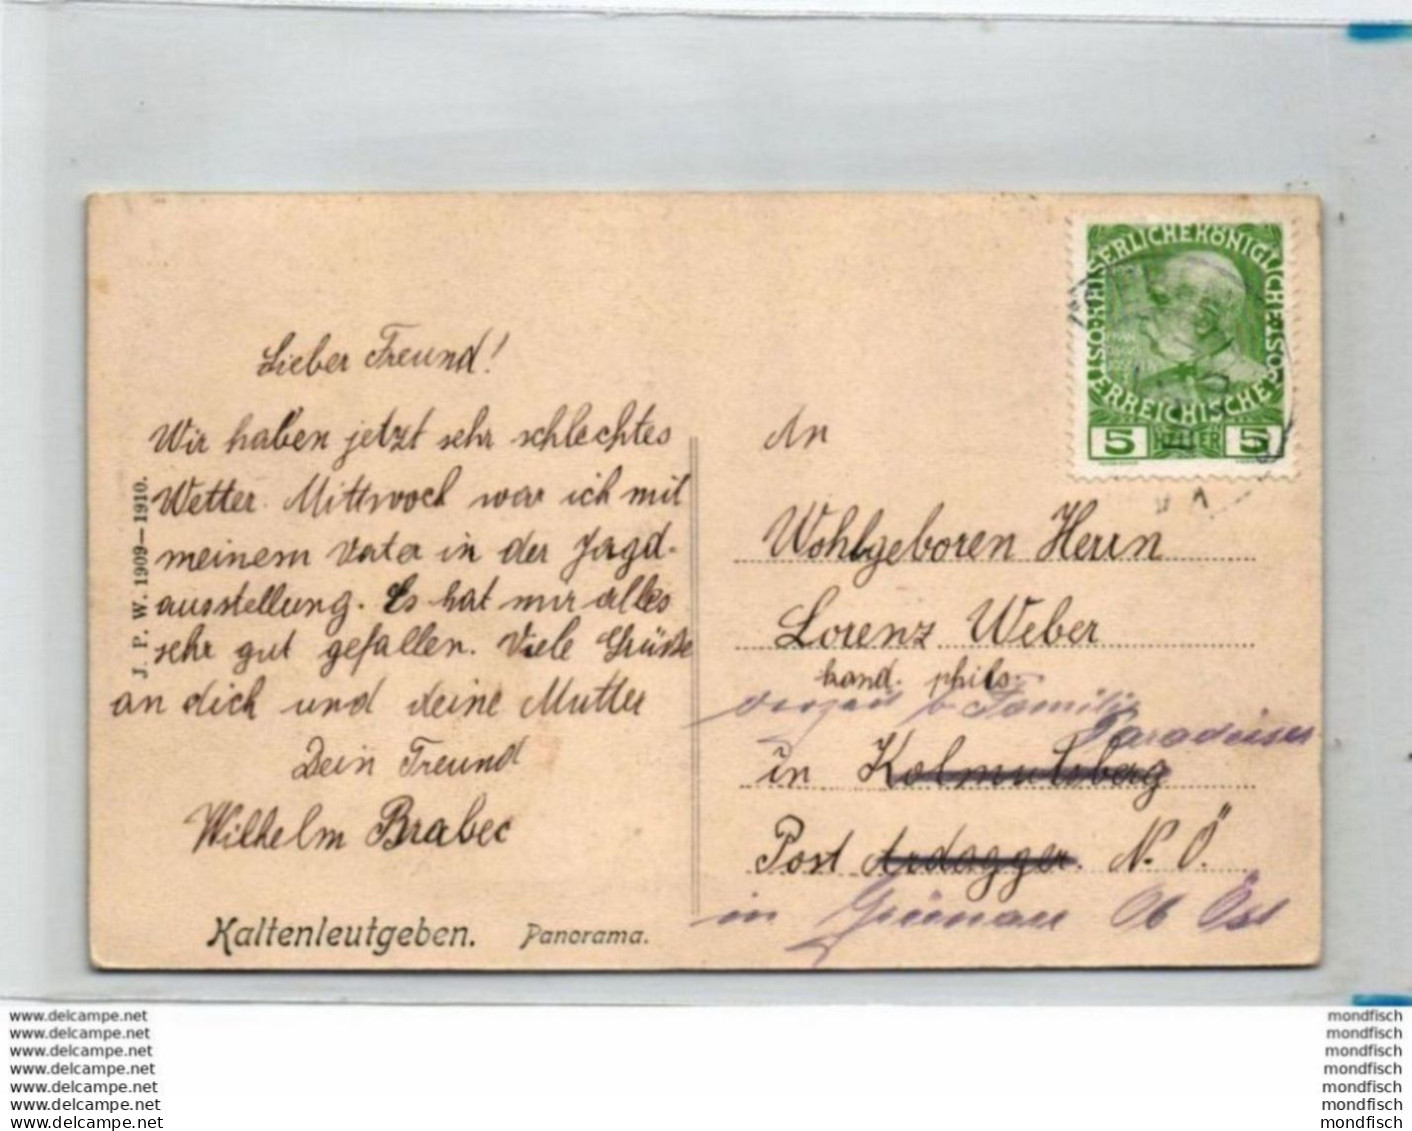 Lieber Freund!
Wir haben jetzt sehr schlechtes
Wetter. Mittwoch war ich mit
meinem Vater in der Jagd-
ausstellung. Es hat mir alles
sehr gut gefallen. Viele Grüße
an dich und deine Mutter
Dein Freund
Wilhelm Brabec
J. P. W. 1909—1910.
Kaltenleutgeben. Panorama.
KAISERLICHE KÖNIGLICHE
ÖSTERREICHISCHE POST
5 HELLER 5
An
Wohlgeboren Herrn
Lorenz Weber
kand. phils.
derzeit b Familie
Paradeiser
in Kolmutsberg
Post Ardagger. N. Ö.
in Grünau Ob Öst
www.delcampe.net
www.delcampe.net
www.delcampe.net
www.delcampe.net
www.delcampe.net
www.delcampe.net
www.delcampe.net
mondfisch
mondfisch
mondfisch
mondfisch
mondfisch
mondfisch
mondfisch